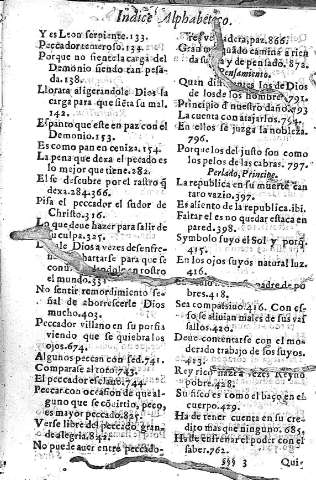 Indice Alphabetico.
Y es Leon serpiente.133.
Peccador temeroso.134.
Porque no siente la carga del
Demonio siendo tan pesa-
da.138.
Llorala aligerandole Dios la
carga para que sieta su mal.
142.
Espanto que este en paz con el
Demonio.153.
Es como pan en ceniza.154.
La pena que dexa el pecado es
lo mejor que tiene.282.
El se descubre por el rastro q̃
dexa.284.366.
Pisa el peccador el sudor de
Christo.316.
Lo que deue hazer para salir de
su culpa.325.
Dios a vezes desenfre-
hartarse para que se
en rostro
el mundo.331.
No sentir remordimiento se-
ñal de aborrescerle Dios
mucho.403.
Peccador villano en su porfia
viendo que se quiebra los
ojos.674.
Algunos peccan con sed.741.
Comparase al toro.743.
El peccador esclauo.744.
Peccar con occasion de que al-
guno que se cōuirtio, peco,
es mayor peccado.825.
Verse libre del peccado gran-
de alegria.842.
No puede auer entre peccado-
verdadera, paz.866.
Gran camino a rien
da y de pensado.872.
Pensamiento.
Quan differentes los de Dios
de los de los hombres.791.
Principio de nuestro daño.793
La cuenta con atajarlos.794.
En ellos se juzga la nobleza.
796.
Porque los del justo son como
los pelos de las cabras.797.
Perlado, Principe.
La republica en su muerte tan
taro vazio.397.
Es aliento de la republica.ibi.
Faltar el es no quedar estaca en
pared.398.
Symbolo suyo el Sol y porq̃.
415.
En los ojos suyos natural luz.
416.
padre de po
bres.418.
Sea compassiuo.416. Con es-
so se aliuian males de sus vas
sallos.420.
Deue contentarse con el mo-
derado trabajo de sos suyos.
423.
Rey rico haze a vezes Reyno
pobre.428.
Su fisco es como el baço en el
cuerpo.429.
Ha de tener cuenta en su cre-
dito mas que ninguno.685.
Ha de enfrenar el poder con el
saber.762.
§§§ 3 Qui-